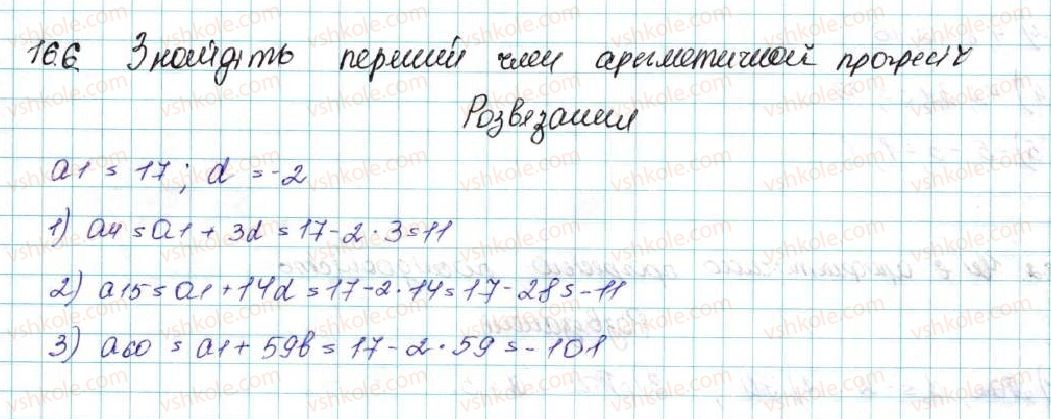 16.6. Знайдіть перший член арифметичной прогресії
Розвезання
a1 = 17; d = -2
1) a4 = a1 + 3d = 17 - 2 · 3 = 11
2) a15 = a1 + 14d = 17 - 2 · 14 = 17 - 28 = -11
3) a60 = a1 + 59b = 17 - 2 · 59 = -101